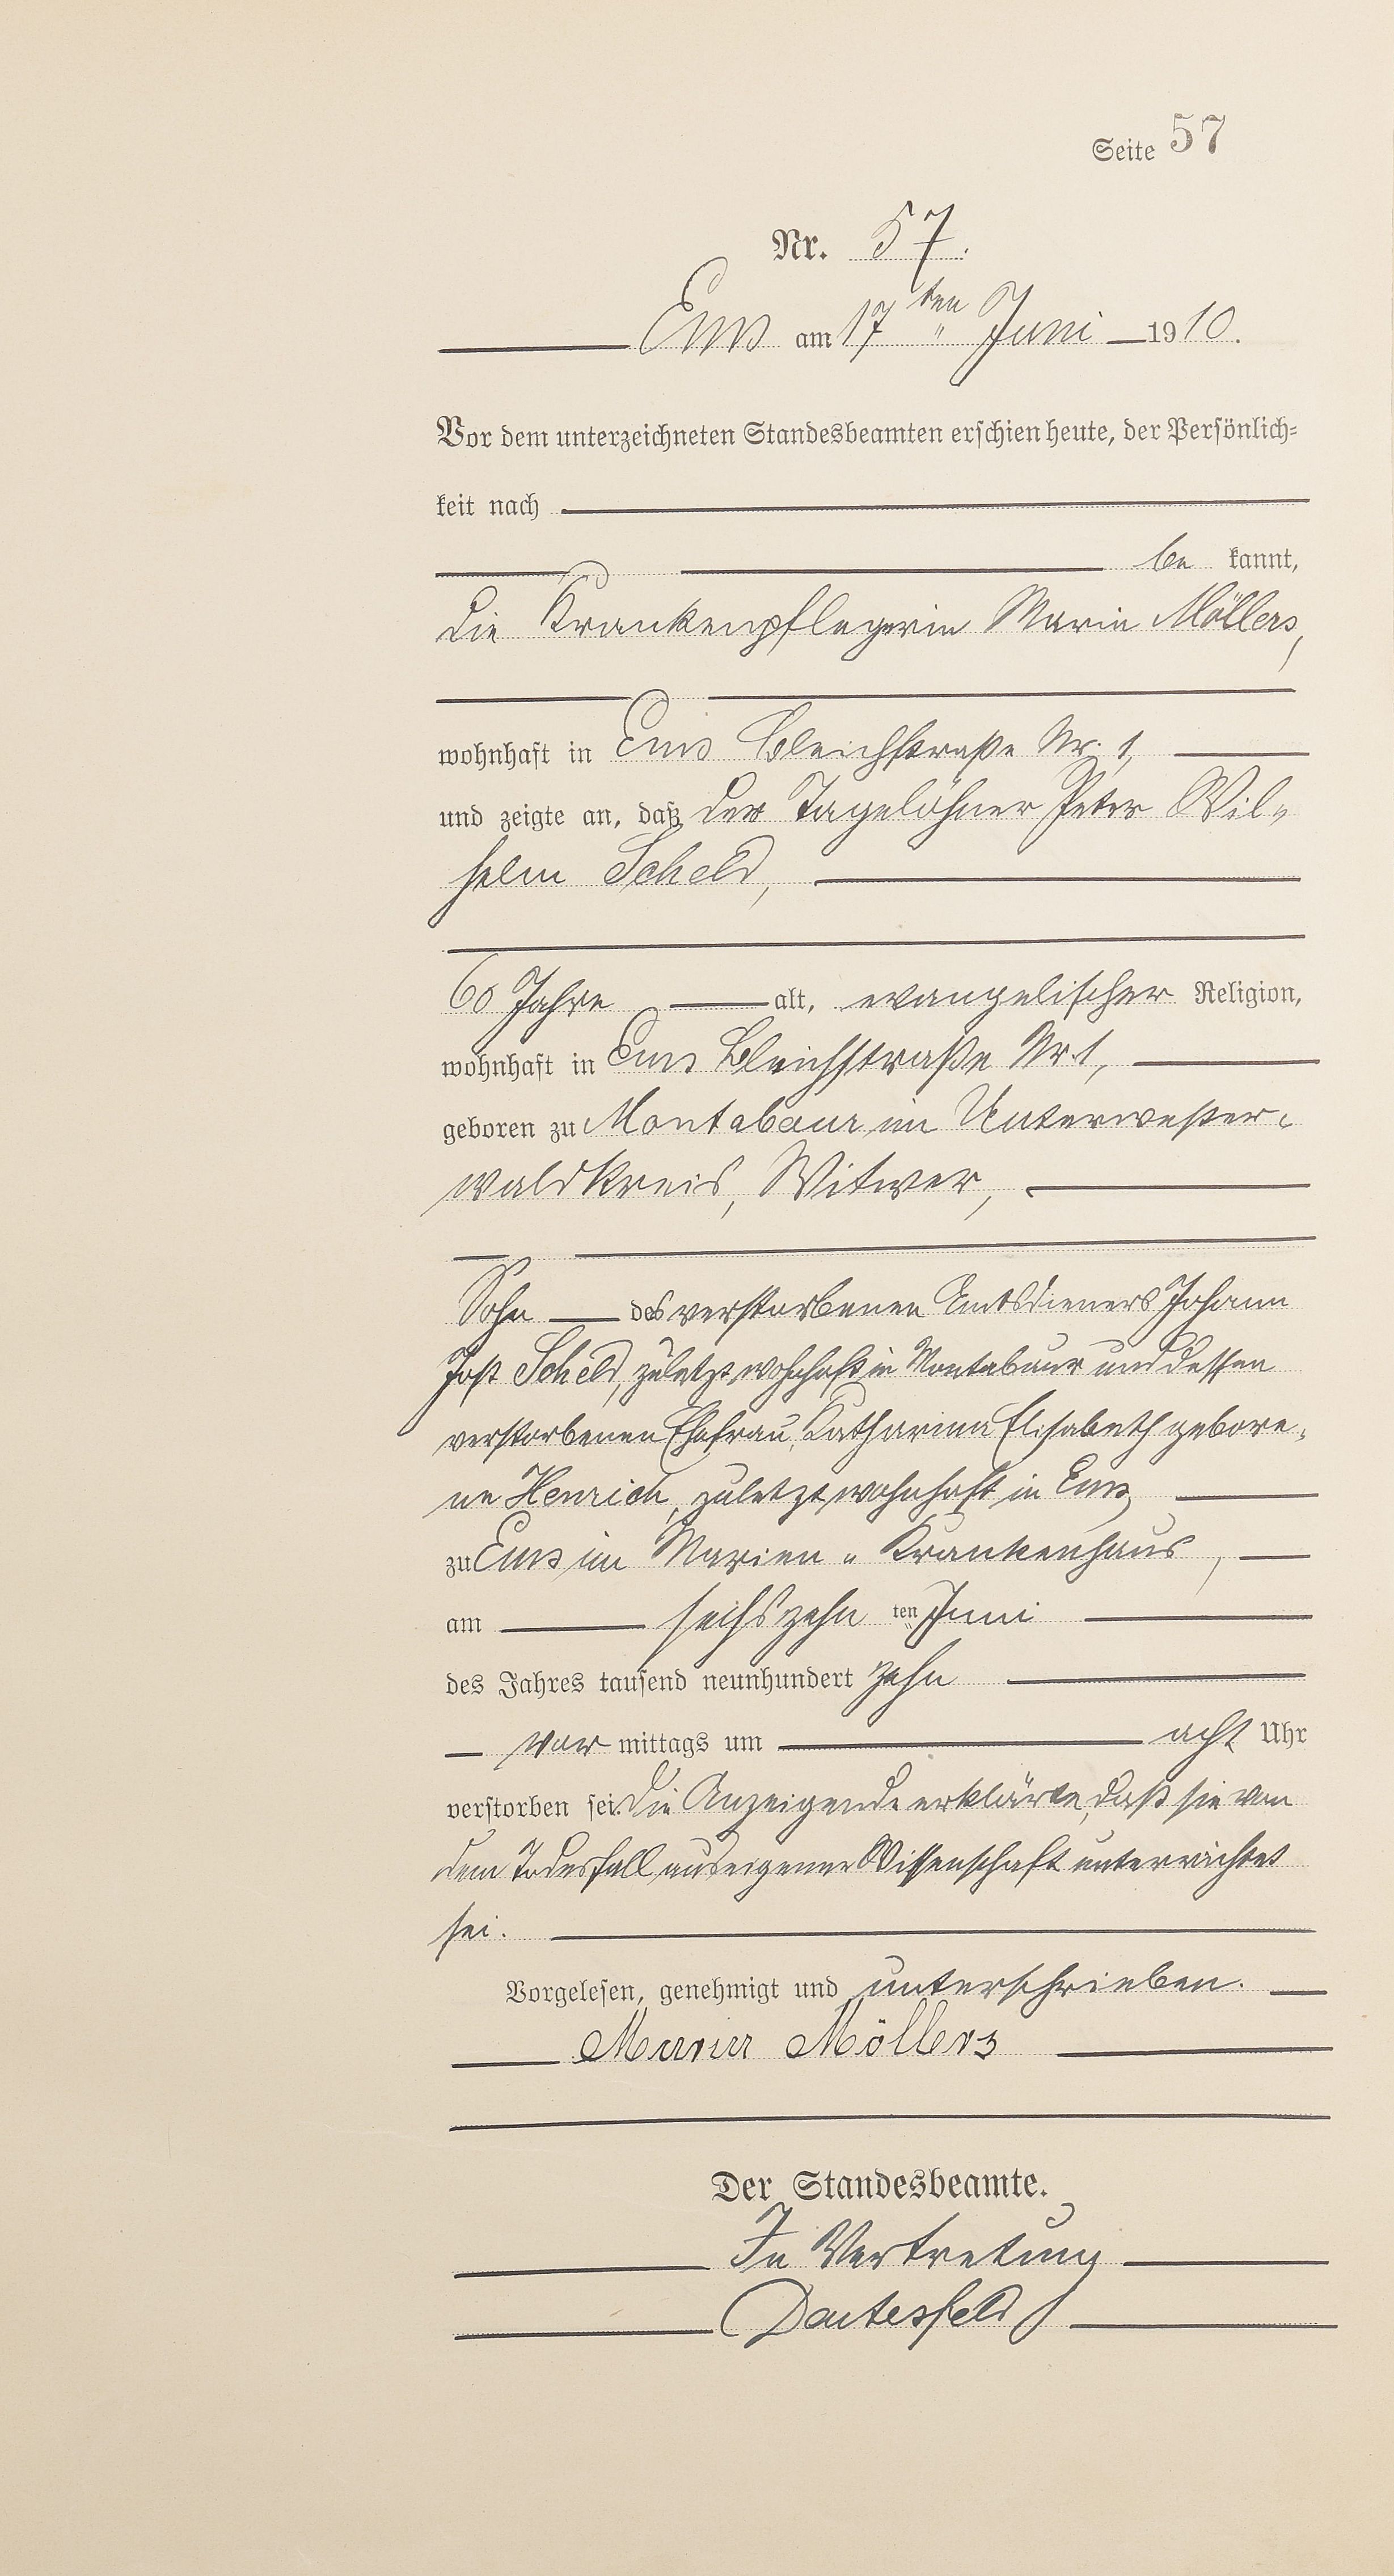 Seite 57
Nr. 57.
Ems am 17ten Juni 1910.
Vor dem unterzeichneten Standesbeamten erschien heute, der Persönlich-
keit nach
be kannt,
die Krankenpflegerin Maria Möllers,
wohnhaft in Ems Bleichstraße Nr. 1,
und zeigte an, daß der Tagelöhner Peter Wil-
helm Scheld,
60 Jahre alt, evangelischer Religion,
wohnhaft in Ems Bleichstraße Nr. 1,
geboren zu Montabaur im Unterwester-
waldkreis, Witwer,
Sohn des verstorbenen Amtsdieners Johann
Jost Scheld, zuletzt wohnhaft in Montabaur und dessen
verstorbenen Ehefrau, Katharina Elisabeth gebore-
ne Henrich, zuletzt wohnhaft in Ems,
zu Ems im Marien-Krankenhaus,
am sechszehn ten Juni
des Jahres tausend neunhundert zehn
vor mittags um acht Uhr
verstorben sei. Die Anzeigende erklärte, daß sie von
dem Todesfall aus eigener Wissenschaft unterrichtet
sei.
Vorgelesen, genehmigt und unterschrieben.
Maria Möllers
Der Standesbeamte.
In Vertretung